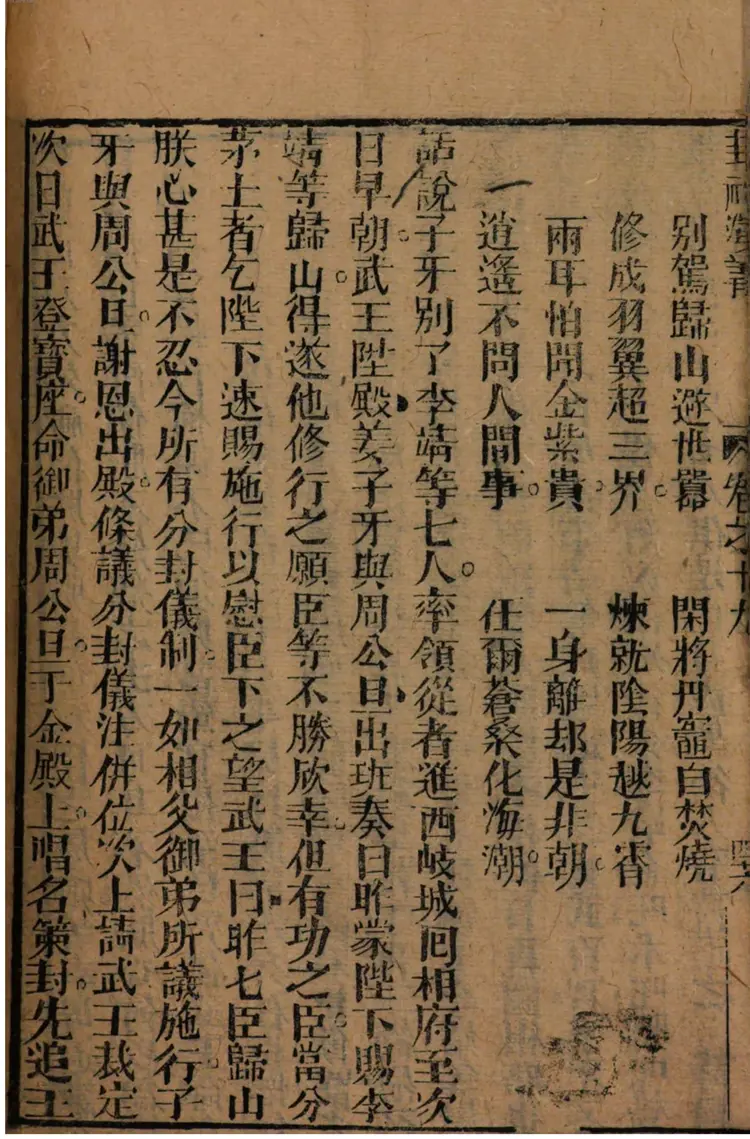 封神演義 卷之十九 四六
別駕歸山避世囂 閑將丹竈自焚燒
修成羽翼超三界。 煉就陰陽越九霄
雨耳怕聞金紫貴。 一身離却是非朝。
一道遙不問人間事。 任爾蒼桑化海潮。
話說子牙別了李靖等七人。率領從者進西岐城囘相府至次
日早朝。武王陞殿姜子牙與周公旦出班奏曰昨蒙陛下賜李
靖等歸山。得遂他修行之願臣等不勝欣幸。但有功之臣。當分
茅土者乞陛下速賜施行以慰臣下之望武王曰昨七臣歸山
朕心甚是不忍今所有分封儀制。一如相父御弟所議施行。子
牙與周公旦。謝恩出殿。條議分封儀注併位次上請武王裁定
次日武王登寶座。命御弟周公旦。于金殿上。唱名策封。先追王